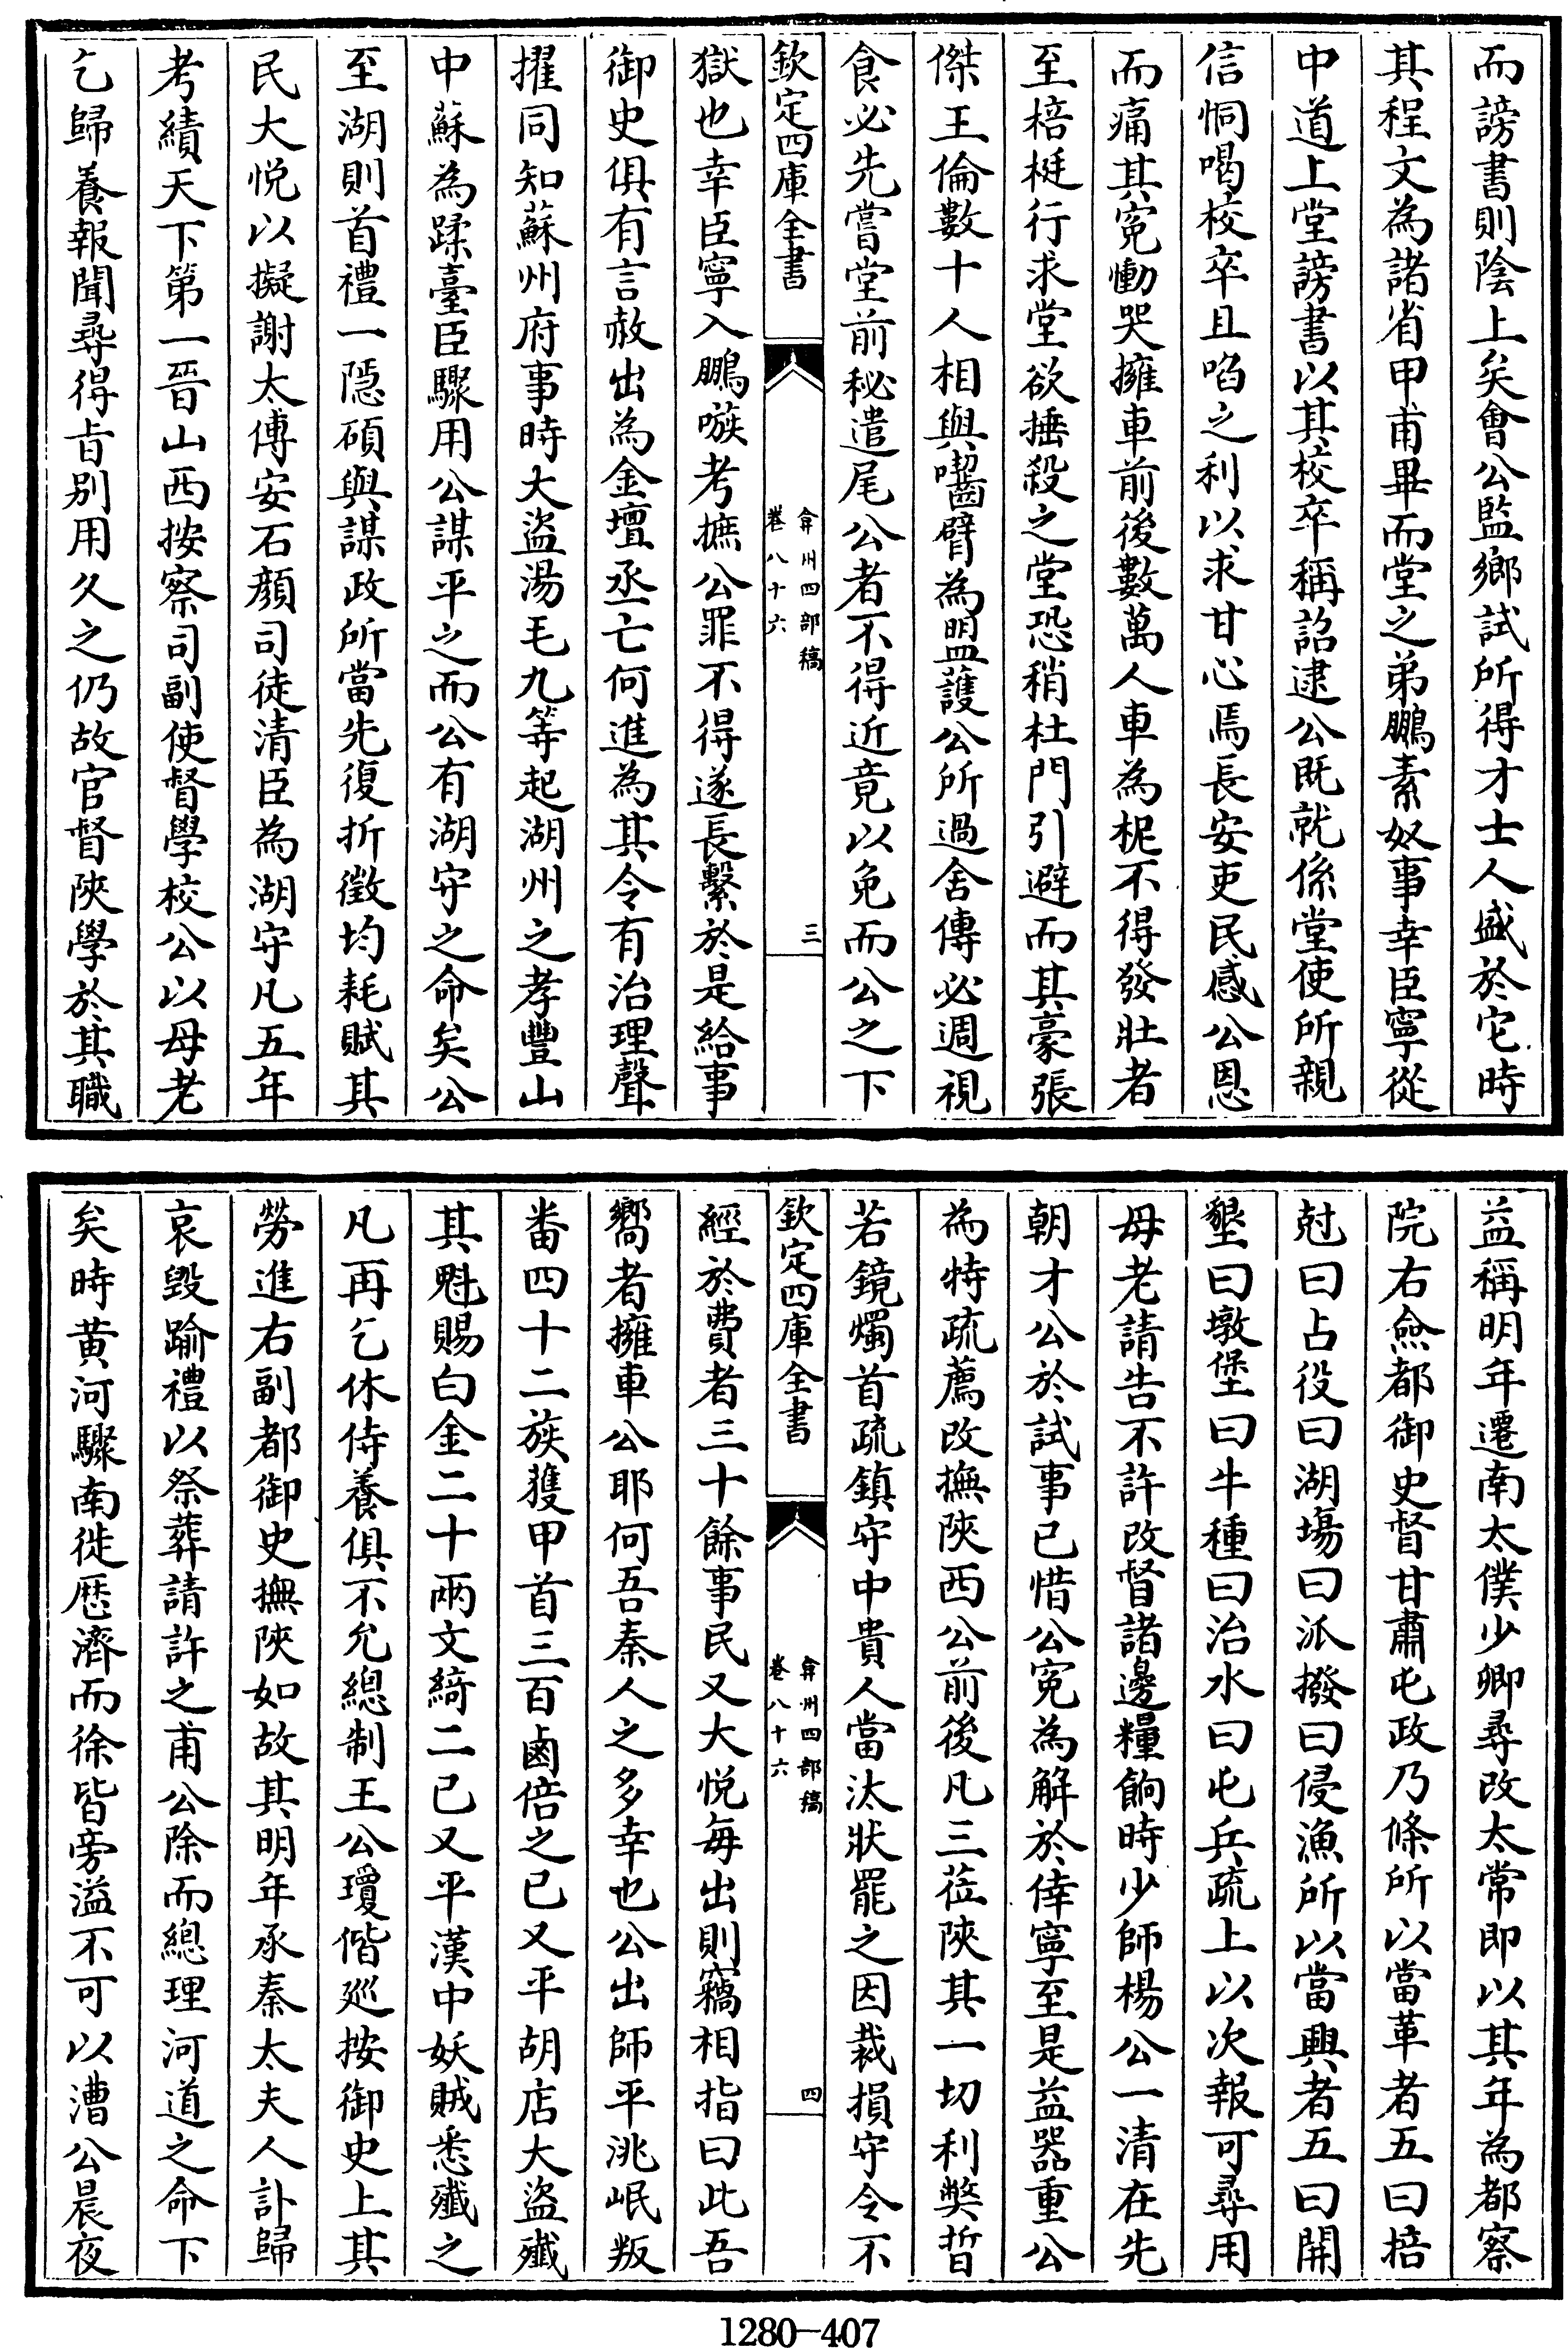 而謗書則陰上矣會公監鄉試所得才士人盛於它時
其程文為諸省甲甫畢而堂之弟鵬素奴事幸臣寧從
中道上堂謗書以其校卒稱詔逮公既就係堂使所親
信恫喝校卒且啗之利以求甘心焉長安吏民感公恩
而痛其寃慟哭擁車前後數萬人車為柅不得發壯者
至棓梃行求堂欲捶殺之堂恐稍杜門引避而其豪張
傑王倫數十人相與囓臂為盟護公所過舍傳必週視
食必先嘗堂前秘遣尾公者不得近竟以免而公之下
欽定四庫全書
弇州四部稿
卷八十六
三
獄也幸臣寧入鵬嗾考摭公罪不得遂長繫於是給事
御史俱有言赦出為金壇丞亡何進為其令有治理聲
擢同知蘇州府事時大盜湯毛九等起湖州之孝豐山
中蘇為蹂臺臣驟用公謀平之而公有湖守之命矣公
至湖則首禮一隱碩與謀政所當先復折徵均耗賦其
民大悅以擬謝太傅安石顏司徒清臣為湖守凡五年
考績天下第一晉山西按察司副使督學校公以母老
乞歸養報聞尋得旨别用久之仍故官督陜學於其職
益稱明年遷南太僕少卿尋改太常即以其年為都察
院右僉都御史督甘肅屯政乃條所以當革者五曰掊
尅曰占役曰湖塲曰派撥曰侵漁所以當興者五曰開
墾曰墩堡曰牛種曰治水曰屯兵疏上以次報可尋用
母老請告不許改督諸邊糧餉時少師楊公一清在先
朝才公於試事已惜公寃為解於倖寧至是益器重公
為特疏薦改撫陜西公前後凡三莅陜其一切利獘晢
若鏡燭首疏鎮守中貴人當汰狀罷之因裁損守令不
欽定四庫全書
弇州四部稿
卷八十六
四
經於費者三十餘事民又大悅每出則竊相指曰此吾
嚮者擁車公耶何吾秦人之多幸也公出師平洮岷叛
番四十二族獲甲首三百鹵倍之已又平胡店大盜殲
其魁賜白金二十兩文綺二已又平漢中妖賊悉殲之
凡再乞休侍養俱不允總制王公瓊偕廵按御史上其
勞進右副都御史撫陜如故其明年承秦太夫人訃歸
哀毀踰禮以祭葬請許之甫公除而總理河道之命下
矣時黄河驟南徙歷濟而徐皆旁溢不可以漕公晨夜
1280-407